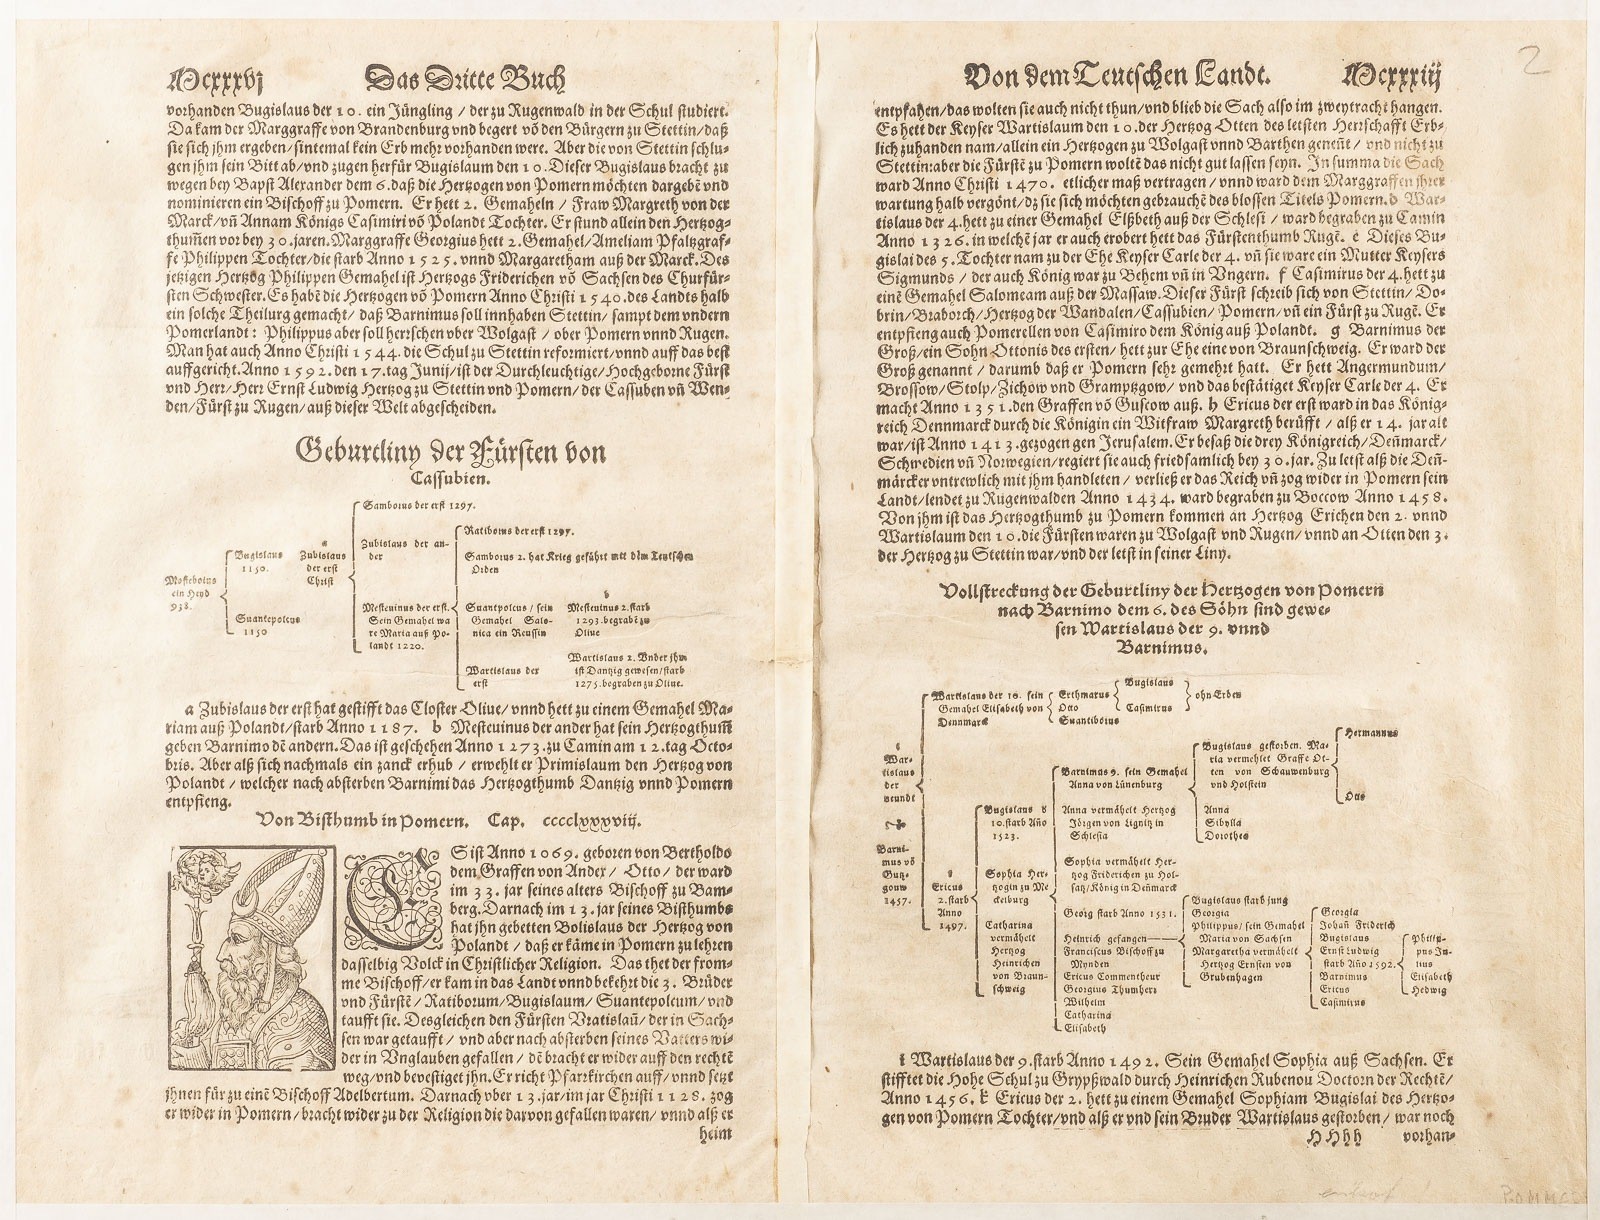 Mcxxxvj Das Dritte Buch
vorhanden Bugislaus der 10. ein Jüngling / der zu Rugenwald in der Schul studiert.
Da kam der Marggraffe von Brandenburg vnd begert võ den Bürgern zu Stettin/daß
sie sich jhm ergeben/sintemal kein Erb mehr vorhanden were. Aber die von Stettin schlu-
gen jhm sein Bitt ab/vnd zugen herfür Bugislaum den 10. Dieser Bugislaus bracht zu
wegen bey Bapst Alexander dem 6. daß die Hertzogen von Pomern möchten dargebẽ vnd
nominieren ein Bischoff zu Pomern. Er hett 2. Gemaheln / Fraw Margreth von der
Marck/vñ Annam Königs Casimiri võ Polandt Tochter. Er stund allein den Hertzog-
thum̃en vor bey 30. jaren. Marggraffe Georgius hett 2. Gemahel/Ameliam Pfaltzgraf-
fe Philippen Tochter/die starb Anno 1525. vnnd Margaretham auß der Marck. Des
jetzigen Hertzog Philippen Gemahel ist Hertzogs Friderichen võ Sachsen des Churfür-
sten Schwester. Es habẽ die Hertzogen võ Pomern Anno Christi 1540. des Landts halb
ein solche Theilurg gemacht/ daß Barnimus soll innhaben Stettin/ sampt dem vndern
Pomerlandt: Philippus aber soll herrschen vber Wolgast / ober Pomern vnnd Rugen.
Man hat auch Anno Christi 1544. die Schul zu Stettin reformiert/vnnd auff das best
auffgericht. Anno 1592. den 17. tag Junij/ist der Durchleuchtige/Hochgeborne Fürst
vnd Herr/Herr Ernst Ludwig Hertzog zu Stettin vnd Pomern/der Cassuben vñ Wen-
den/Fürst zu Rugen/auß dieser Welt abgescheiden.
Geburtliny der Fürsten von
Cassubien.
Samboius der erst 1297.
Ratiboius der erst 1297.
Zubislaus der an-
der
Samboius 2. hat Krieg geführt mit dem Teutschen
Orden
Bugislaus
1150.
a
Zubislaus
der erst
Christ
Mesteboius
ein Heyd
938.
Suantepolcus
1150
Mesteuinus der erst.
Sein Gemahel wa
re Maria auß Po-
landt 1220.
Suantpolcus / sein
Gemahel Salo-
nica ein Reussin
b
Mesteuinus 2. starb
1293. begrabẽ zu
Oliue
Wartislaus der
erst
Wartislaus 2. Vnder jhm
ist Dantzig gewesen/starb
1275. begraben zu Oliue.
a Zubislaus der erst hat gestifft das Closter Oliue/ vnnd hett zu einem Gemahel Ma-
riam auß Polandt/starb Anno 1187. b Mesteuinus der ander hat sein Hertzogthum̃
geben Barnimo dẽ andern. Das ist geschehen Anno 1273. zu Camin am 12. tag Octo-
bris. Aber alß sich nachmals ein zanck erhub / erwehlt er Primislaum den Hertzog von
Polandt / welcher nach absterben Barnimi das Hertzogthumb Dantzig vnnd Pomern
entpfieng.
Von Bisthumb in Pomern. Cap. cccclxxxviij.
ES ist Anno 1069. geboren von Bertholdo
dem Graffen von Ander/ Otto/ der ward
im 33. jar seines alters Bischoff zu Bam-
berg. Darnach im 13. jar seines Bisthumbs
hat jhn gebetten Bolislaus der Hertzog von
Polandt / daß er käme in Pomern zu lehren
dasselbig Volck in Christlicher Religion. Das thet der from-
me Bischoff/er kam in das Landt vnnd bekehrt die 3. Brüder
vnd Fürstẽ/ Ratiborum/Bugislaum/Suantepolcum/vnd
taufft sie. Desgleichen den Fürsten Vratislaũ/der in Sach-
sen war getaufft/ vnd aber nach absterben seines Vatters wi-
der in Vnglauben gefallen/ dẽ bracht er wider auff den rechtẽ
weg/vnd bevestiget jhn. Er richt Pfarrkirchen auff/vnnd setzt
jhnen für zu einẽ Bischoff Adelbertum. Darnach vber 13. jar/im jar Christi 1128. zog
er wider in Pomern/bracht wider zu der Religion die darvon gefallen waren/ vnnd alß er
heim
Von dem Teutschen Landt. Mcxxxiij
2
entpfahen/das wolten sie auch nicht thun/vnd blieb die Sach also im zweytracht hangen.
Es hett der Keyser Wartislaum den 10. der Hertzog Otten des letsten Herrschafft Erb-
lich zuhanden nam/allein ein Hertzogen zu Wolgast vnnd Barthen genent/ vnd nicht zu
Stettin: aber die Fürstẽ zu Pomern woltẽ das nicht gut lassen seyn. In summa die Sach
ward Anno Christi 1470. etlicher maß vertragen/vnnd ward dem Marggraffen jhrer
wartung halb vergönt/dz sie sich möchten gebrauchẽ des blossen Titels Pomern. d War-
tislaus der 4. hett zu einer Gemahel Elßbeth auß der Schlesi / ward begraben zu Camin
Anno 1326. in welchẽ jar er auch erobert hett das Fürstenthumb Rugẽ. e Dieses Bu-
gislai des 5. Tochter nam zu der Ehe Keyser Carle der 4. vñ sie ware ein Mutter Keysers
Sigmunds / der auch König war zu Behem vñ in Vngern. f Casimirus der 4. hett zu
einẽ Gemahel Salomeam auß der Massaw. Dieser Fürst schreib sich von Stettin/Do-
brin/Braborch/Hertzog der Wandalen/Cassubien/Pomern/vñ ein Fürst zu Rugẽ. Er
entpfieng auch Pomerellen von Casimiro dem König auß Polandt. g Barnimus der
Groß/ein Sohn Ottonis des ersten/hett zur Ehe eine von Braunschweig. Er ward der
Groß genannt / darumb daß er Pomern sehr gemehrt hatt. Er hett Angermundum/
Brossow/Stolp/Zichow vnd Grampzgow/ vnd das bestätiget Keyser Carle der 4. Er
macht Anno 1351. den Graffen võ Guscow auß. h Ericus der erst ward in das König-
reich Dennmarck durch die Königin ein Witfraw Margreth berüfft / alß er 14. jar alt
war/ist Anno 1413. gezogen gen Jerusalem. Er besaß die drey Königreich/Deñmarck/
Schwedien vñ Norwegien/regiert sie auch friedsamlich bey 30. jar. Zu letst alß die Deñ-
märcker vntrewlich mit jhm handleten/ verließ er das Reich vñ zog wider in Pomern sein
Landt/lendet zu Rugenwalden Anno 1434. ward begraben zu Boccow Anno 1458.
Von jhm ist das Hertzogthumb zu Pomern kommen an Hertzog Erichen den 2. vnnd
Wartislaum den 10. die Fürsten waren zu Wolgast vnd Rugen/ vnnd an Otten den 3.
der Hertzog zu Stettin war/vnd der letst in seiner Liny.
Vollstreckung der Geburtliny der Hertzogen von Pomern
nach Barnimo dem 6. des Söhn sind gewe-
sen Wartislaus der 9. vnnd
Barnimus.
Wartislaus der 10. sein
Gemahel Elisabeth von
Dennmarck
Erthmarus
Otto
Suantiboius
Bugislaus
Casimirus
ohn Erben
i
War-
tislaus
der
neundt
Barni-
mus võ
Gutz-
gouw
1457.
Ericus
2. starb
Anno
1497.
Bugislaus
10. starb Año
1523.
Sophia Her-
tzogin zu Me
ckelburg
Catharina
vermählt
Hertzog
Heinrichen
von Braun-
schweig
Barnimus 9. sein Gemahel
Anna von Lünenburg
Anna vermählt Hertzog
Jörgen von Lignitz in
Schlesia
Sophia vermählt Her-
tzog Friderichen zu Hol-
satz/König in Deñmarck
Georg starb Anno 1531.
Heinrich gefangen
Franciscus Bischoff zu
Mynden
Ericus Commentheur
Georgius Thumherr
Wilhelm
Catharina
Elisabeth
Bugislaus gestorben. Ma-
ria vermehlet Graffe Ot-
ten von Schauwenburg
vnd Holstein
Anna
Sibylla
Dorothea
Hermannus
Otto
Bugislaus starb jung
Georgia
Philippus/sein Gemahel
Maria von Sachsen
Margaretha vermählt
Hertzog Ernsten von
Grubenhagen
Georgia
Johañ Friderich
Bugislaus
Ernst Ludwig
starb Año 1592.
Barnimus
Ericus
Casimirus
Philip-
pus Ju-
lius
Elisabeth
Hedwig
i Wartislaus der 9. starb Anno 1492. Sein Gemahel Sophia auß Sachsen. Er
stifftet die Hohe Schul zu Grypßwald durch Heinrichen Rubenou Doctorn der Rechtẽ/
Anno 1456. k Ericus der 2. hett zu einem Gemahel Sophiam Bugislai des Hertzo-
gen von Pomern Tochter/vnd alß er vnd sein Bruder Wartislaus gestorben/ war noch
HHhh vorhan-
POMME